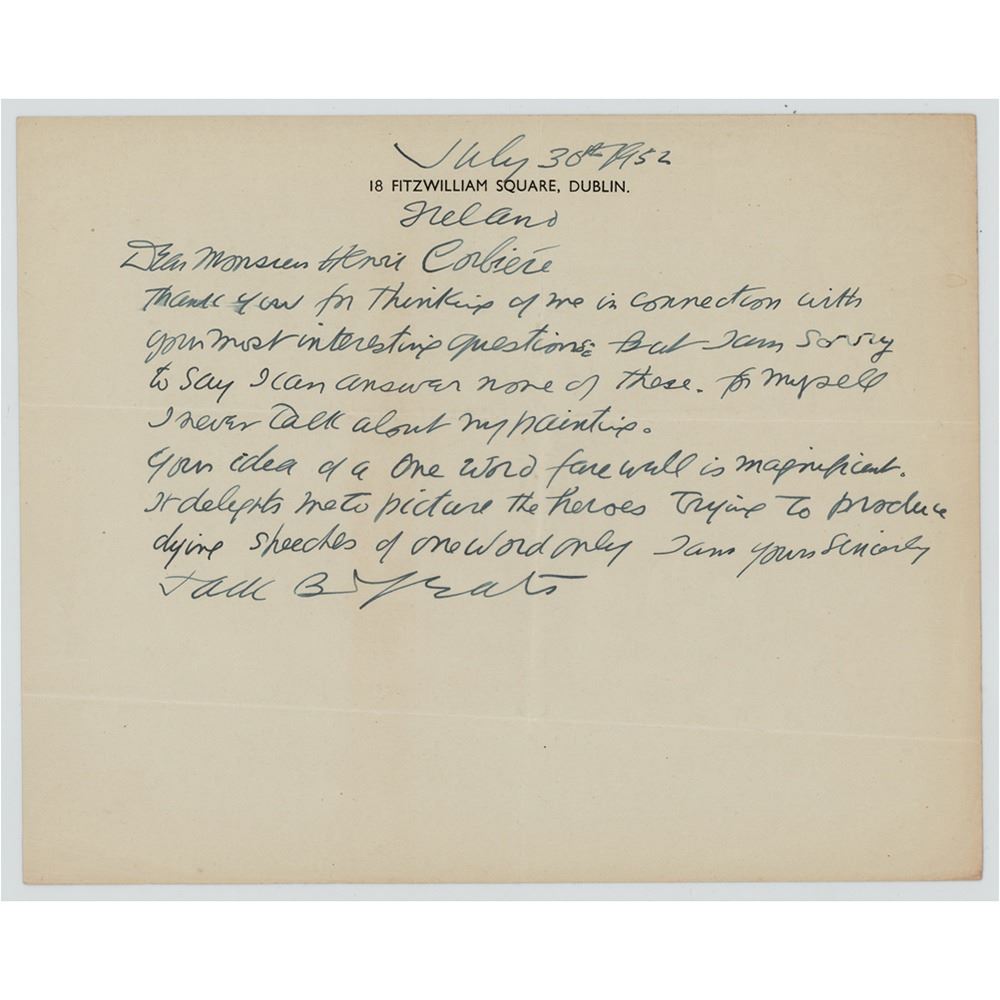 July 30th 1952
18 FITZWILLIAM SQUARE, DUBLIN.
Ireland
Dear Monsieur Henri Corbière
Thank you for thinking of me in connection with
your most interesting questions: But I am sorry
to say I can answer none of these. for myself
I never talk about my painting.
Your idea of a one word farewell is magnificent.
It delights me to picture the heroes trying to produce
dying speeches of one word only I am yours sincerely
Jack B Yeats